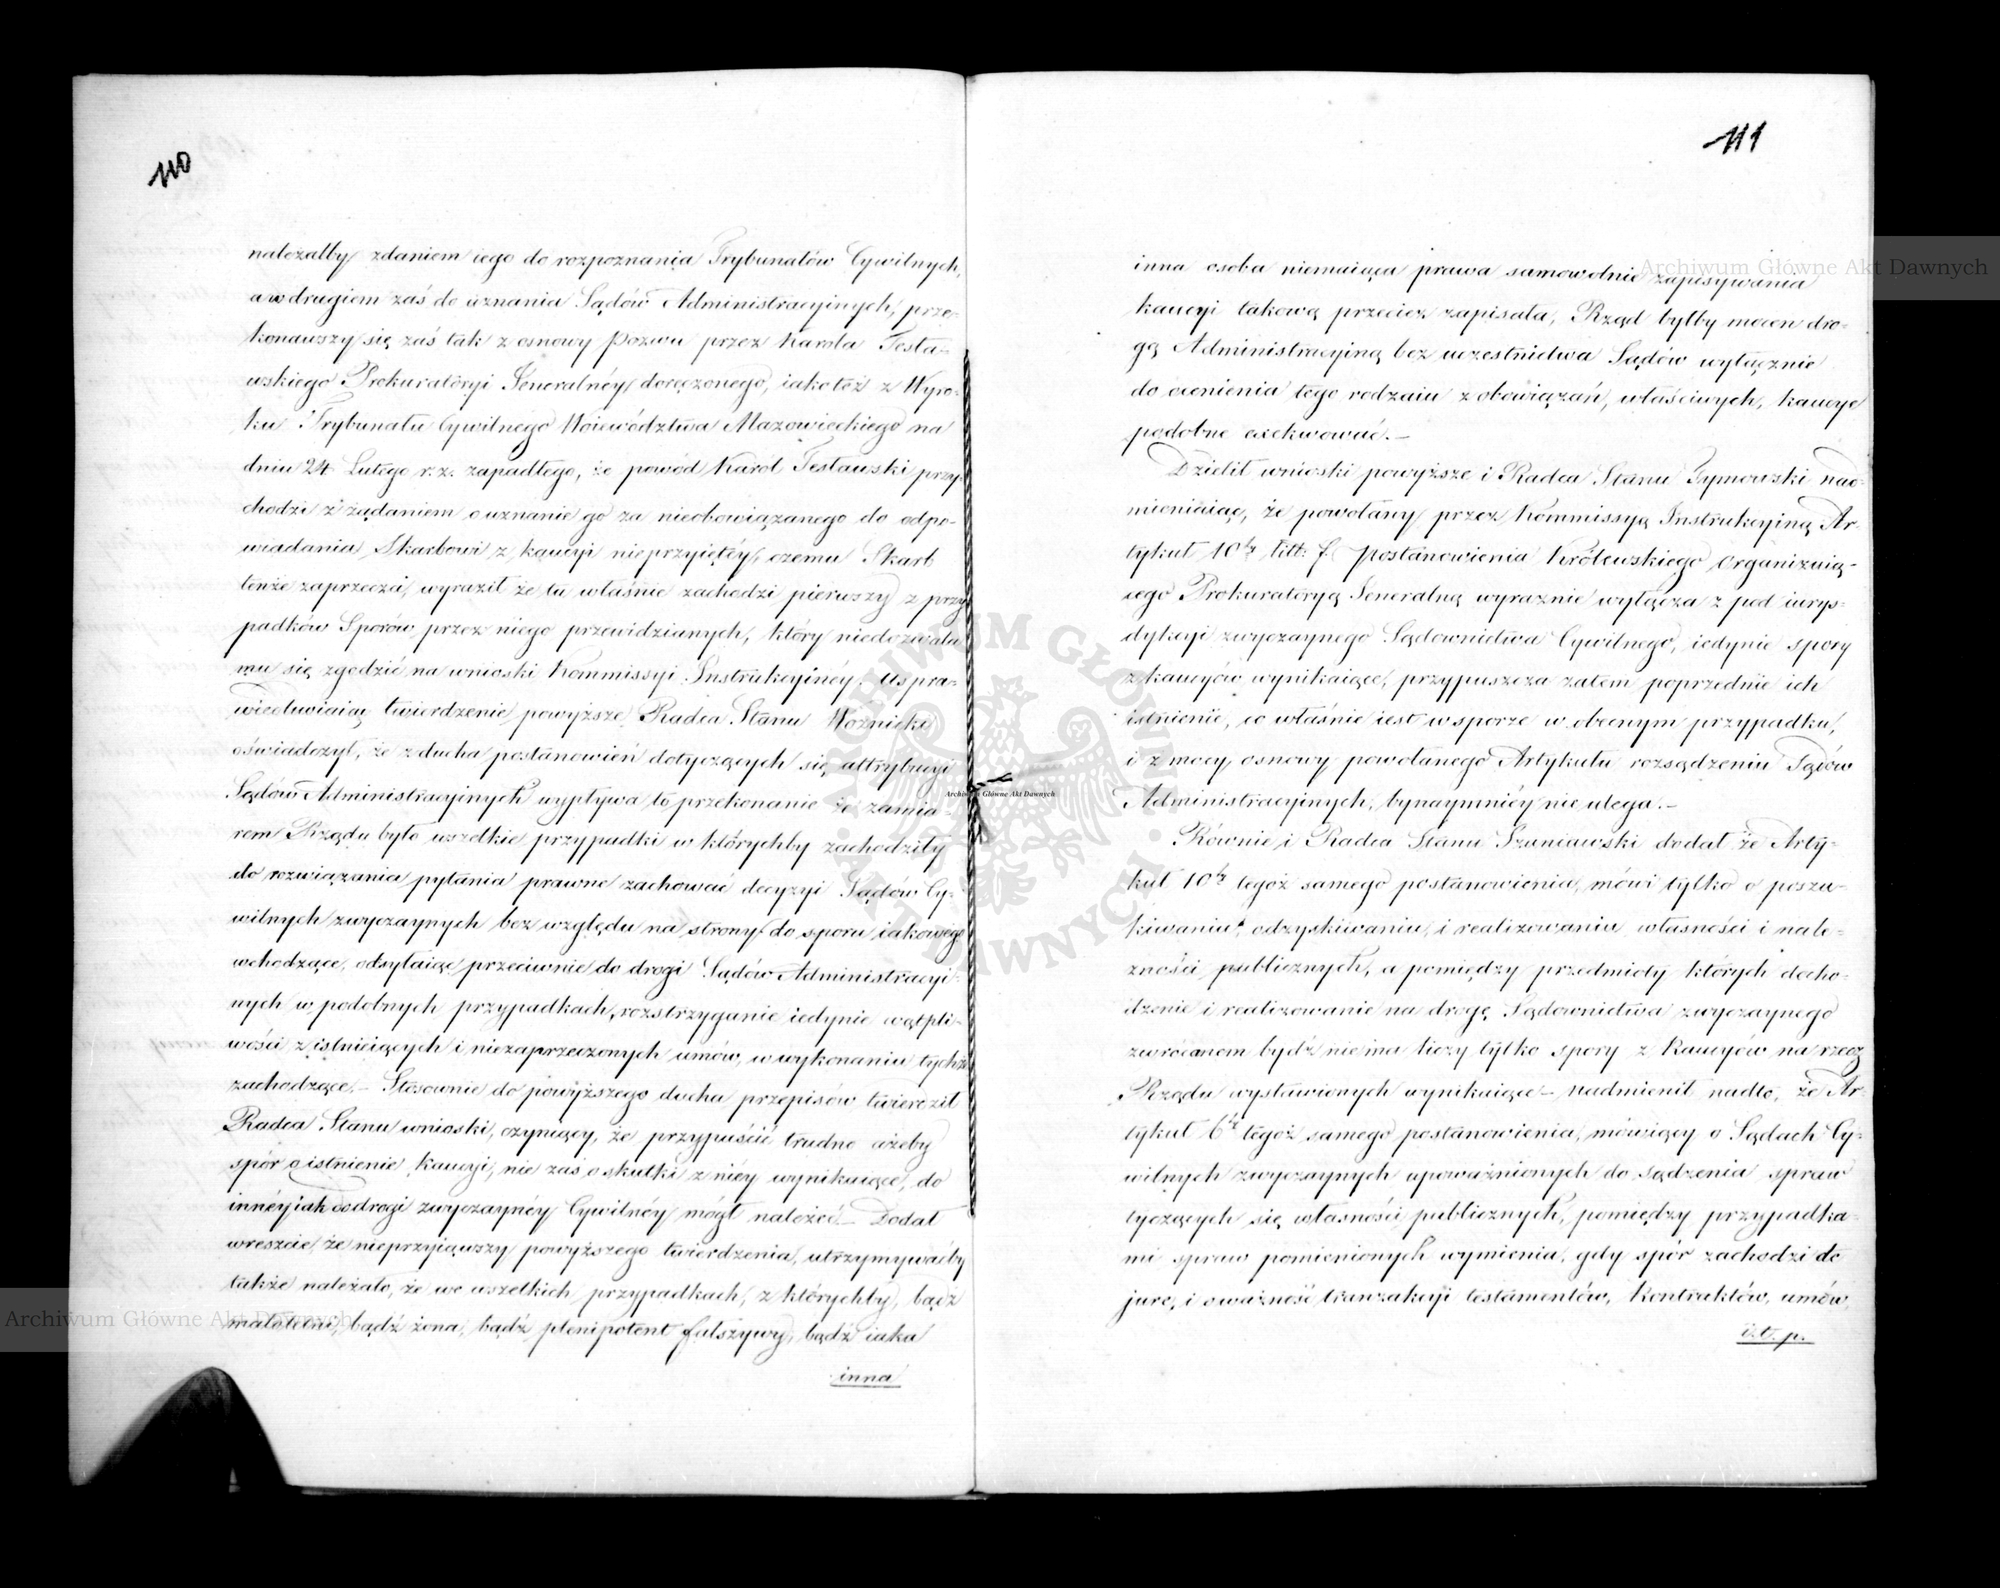 110
należałby zdaniem iego do rozpoznania Trybunałów Cywilnych,
a w drugiem zaś do uznania Sądów Administracyinych, prze-
konawszy się zaś tak z osnowy pozwu przez Karola Testa-
wskiego Prokuratoryi Generalnéy doręczonego, iako też z Wyro-
ku Trybunału Cywilnego Woiewództwa Mazowieckiego na
dniu 24 Lutego r. z. zapadłego, że powód Karol Testawski przy-
chodzi z żądaniem o uznanie go za nieobowiązanego do odpo-
wiadania Skarbowi z kaucyi nieprzyiętéy, czemu Skarb
tenże zaprzecza, wyraził że tu właśnie zachodzi pierwszy z przy-
padków Sporów przez niego przewidzianych, który niedozwala
mu się zgodzić na wnioski Kommissyi Instrukcyinéy. Uspra-
wiedliwiaiąc twierdzenie powyższe Radca Stanu Woźnicki
oświadczył, że z ducha postanowień dotyczących się attrybucyi
Sądów Administracyinych wypływa to przekonanie że zamia-
rem Rządu było wszelkie przypadki w którychby zachodziły
do rozwiązania pytania prawne zachować decyzyi Sądów Cy-
wilnych zwyczaynych bez względu na strony do sporu iakowego
wchodzące, odsyłaiąc przeciwnie do drogi Sądów Administracyi-
nych w podobnych przypadkach, rozstrzyganie iedynie wątpli-
wości z istnieiących i niezaprzeczonych umów, w wykonaniu tychże
zachodzące. – Stosownie do powyższego ducha przepisów twierdził
Radca Stanu wnioski, czyniący, że przypuścić trudno ażeby
spór o istnienie kaucyi, nie zaś o skutki z niéy wynikaiące, do
innéy iak do drogi zwyczaynéy Cywilnéy mógł należeć. – Dodał
wreszcie, że nieprzyiąwszy powyższego twierdzenia, utrzymywaćby
także należało, że we wszelkich przypadkach, z którychby, bądź
małoletni, bądź żona, bądź plenipotent fałszywy, bądź iaka
inna
111
inna osoba niemaiąca prawa samowolnie zapisywania
kaucyi takową przecież zapisała, Rząd byłby mocen dro-
gą Administracyiną bez uczestnictwa Sądów wyłącznie
do ocenienia tego rodzaiu z obowiązań, właściwych, kaucye
podobne exekwować. –
Dzielił wnioski powyższe i Radca Stanu Tymowski nad-
mieniaiąc, że powołany przez Kommissyą Instrukcyiną Ar-
tykuł 10ty litt: f. postanowienia Królewskiego organizuią-
cego Prokuratoryą Generalną wyraznie wyłącza z pod iurys-
dykcyi zwyczaynego Sądownictwa Cywilnego, iedynie spory
z kaucyów wynikaiące, przypuszcza zatem poprzednie ich
istnienie, co właśnie iest w sporze w obecnym przypadku,
i z mocy osnowy powołanego Artykułu rozsądzeniu Sądów
Administracyinych, bynaymniéy nie ulega. –
Równie i Radca Stanu Szaniawski dodał że Arty-
kuł 10ty tegoż samego postanowienia, mówi tylko o poszu-
kiwaniu, odzyskiwaniu, i realizowaniu własności i nale-
żności publicznych, a pomiędzy przedmioty których docho-
dzenie i realizowanie na drogę Sądownictwa zwyczaynego
zwróconem bydź niema liczy tylko spory z Kaucyów na rzecz
Rządu wystawionych wynikaiące – nadmienił nadto, że Ar-
tykuł 6ty tegoż samego postanowienia, mówiący o Sądach Cy-
wilnych zwyczaynych upoważnionych do sądzenia spraw
tyczących się własności publicznych, pomiędzy przypadka-
mi spraw pomienionych wymienia, gdy spór zachodzi de
jure, i o ważność tranzakcyi testamentów, Kontraktów, umów,
i. t. p.
Archiwum Główne Akt Dawnych
Archiwum Główne Akt Dawnych
Archiwum Główne Akt Dawnych
ARCHIWUM GŁÓWNE AKT DAWNYCH